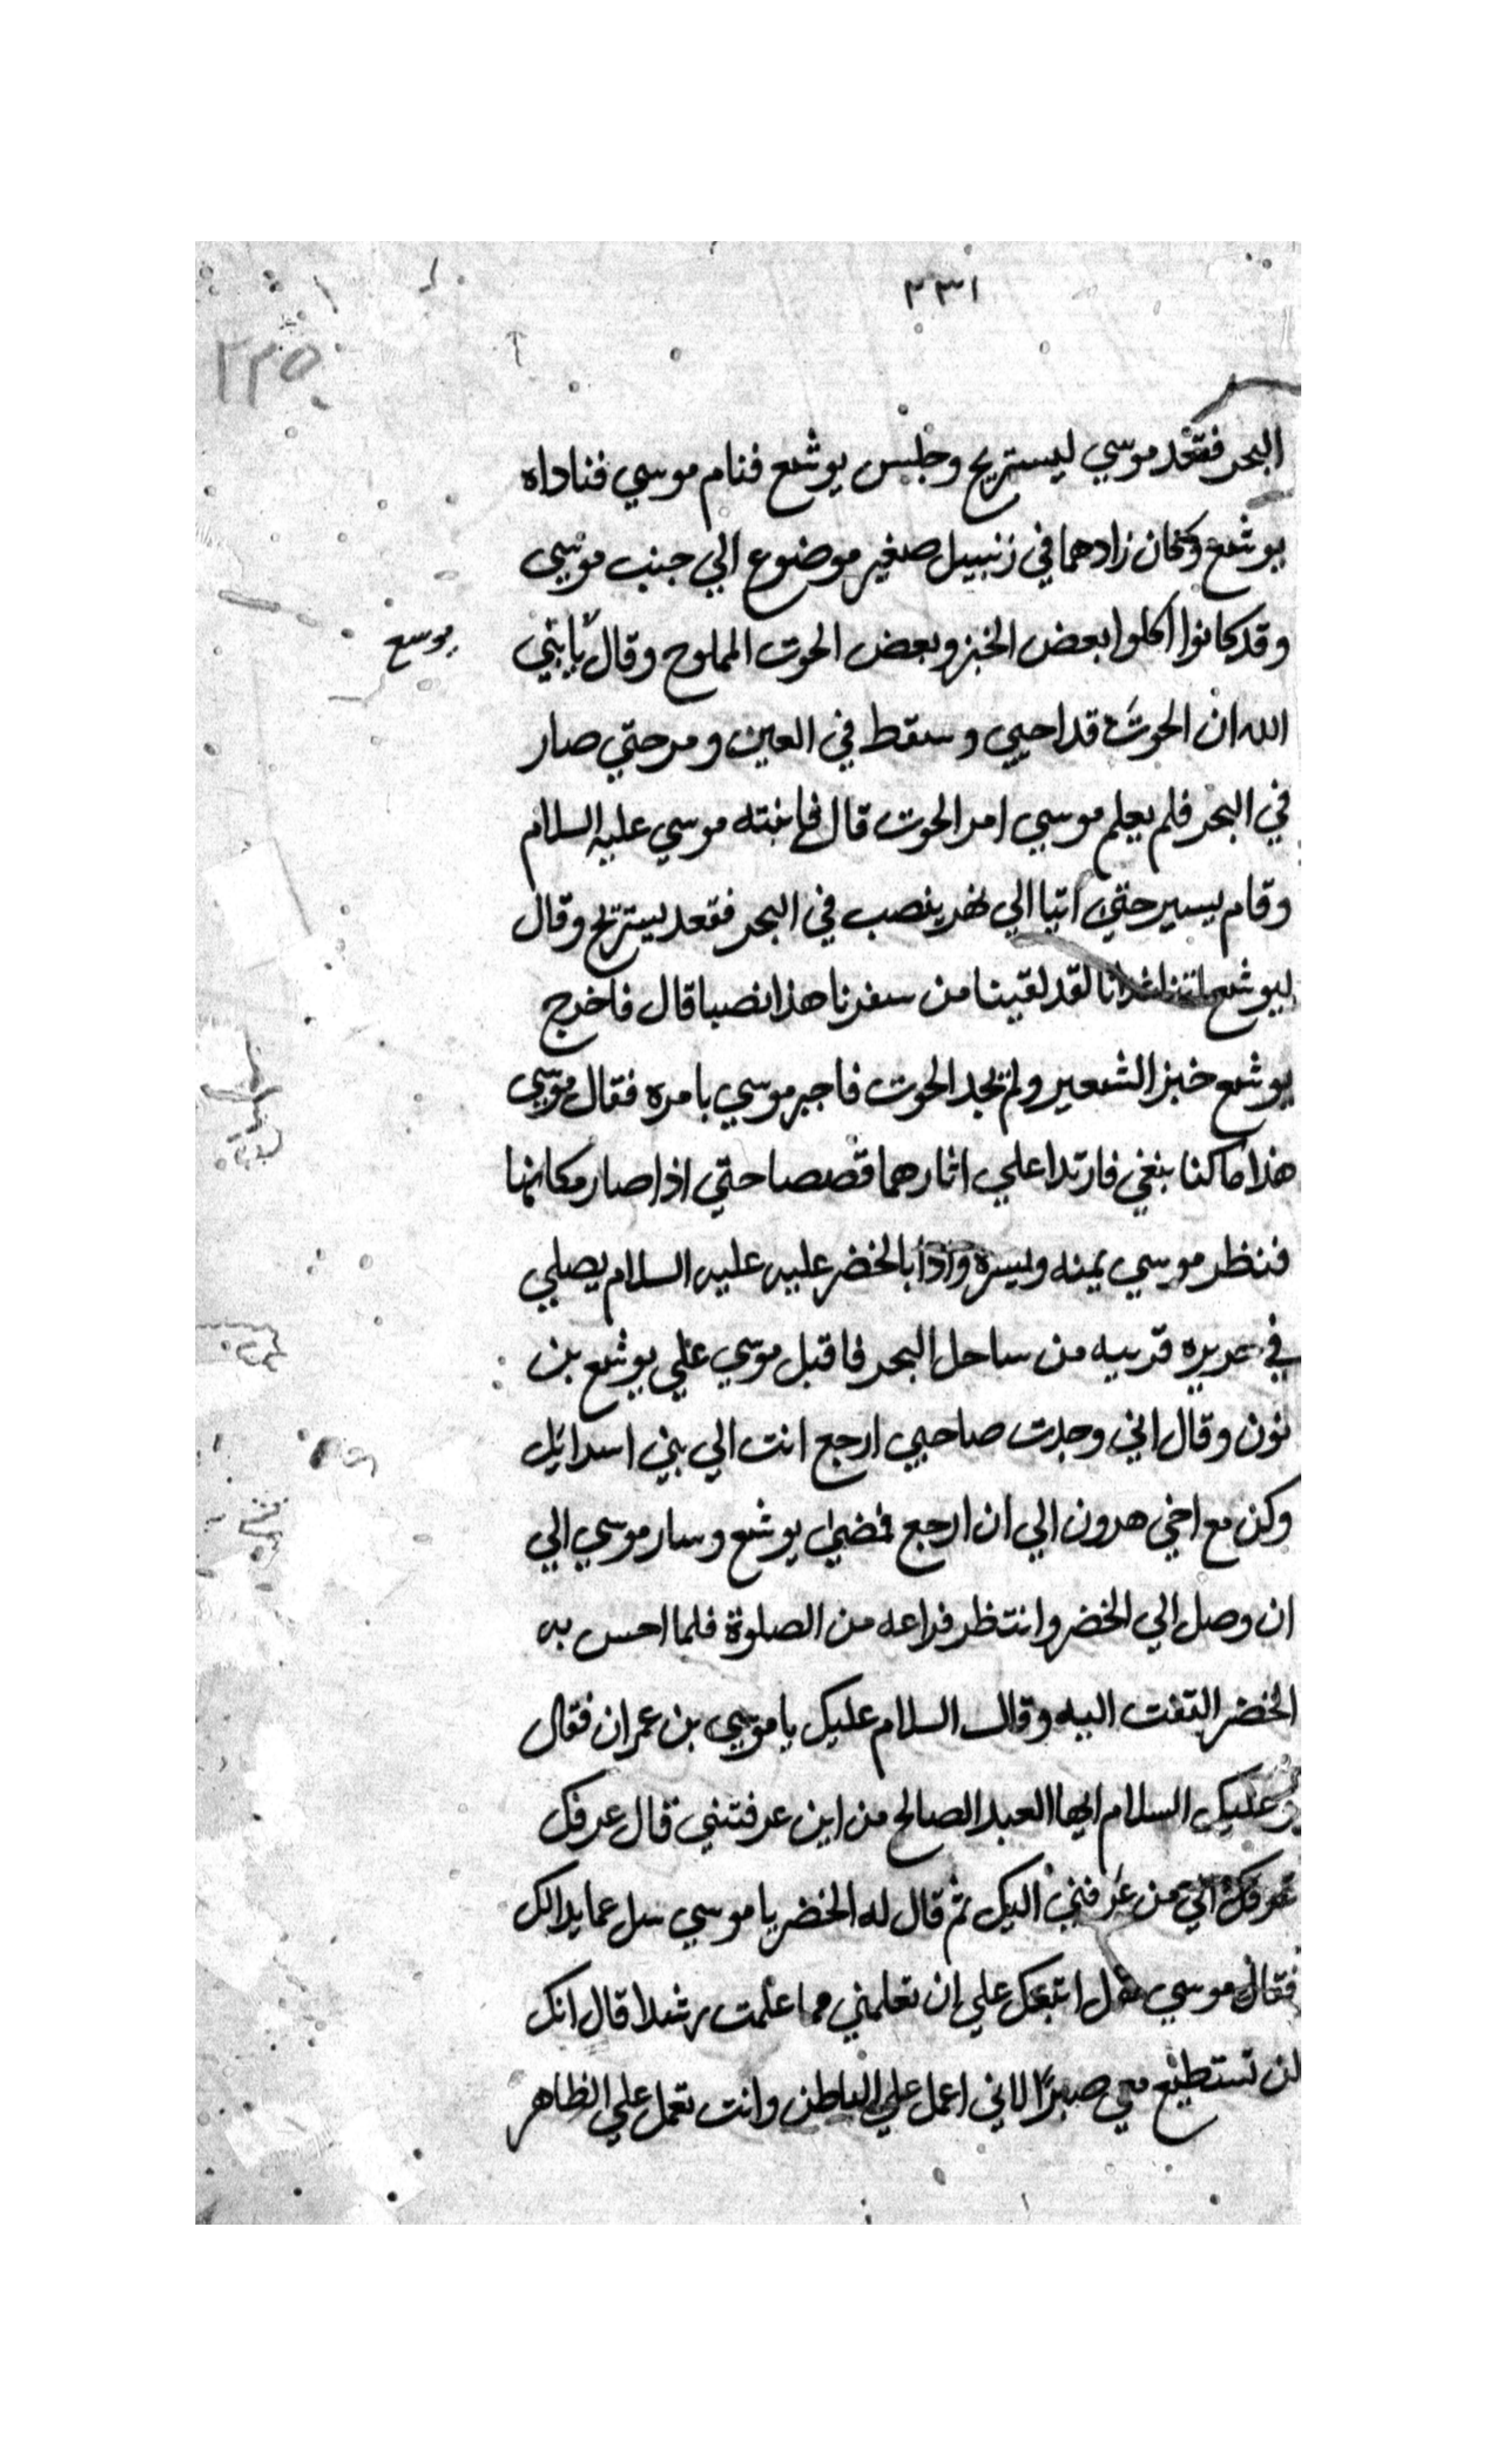 ٣٣١
٢٢٥
البحر فقعد موسي ليستريح وجلس يوشع فنام موسي فناداه
يوشع وكان زادهما في زنبيل صغير موضوع الي جنب موسي
وقد كانوا اكلوا بعض الخبز وبعض الحوت المملوح وقال يا نبي
يوسع
الله ان الحوت قد احيي وسقط في العين ومر حتي صار
في البحر فلم يعلم موسي امر الحوت قال فانبته موسي عليه السلام
وقام يسير حتي اتيا الي نهر ينصب في البحر فقعد يستريح وقال
ليوشع اتنا غدانا لقد لقينا من سفرنا هذا نصبا قال فاخرج
يوشع خبز الشعير ولم يجد الحوت فاخبر موسي بامره فقال موسي
هذا ما كنا نبغي فارتدا علي اثارهما قصصا حتي اذا صار مكانهما
فنظر موسي يمنه ويسره واذا بالخضر عليه عليه السلام يصلي
في جزيره قريبه من ساحل البحر فاقبل موسي علي يوشع بن
نون وقال اني وجدت صاحبي ارجع انت الي بني اسرائل
وكن مع اخي هرون الي ان ارجع فمضي يوشع وسار موسي الي
ان وصل الي الخضر وانتظر فراغه من الصلوة فلما احس به
الخضر التفت اليه وقال السلام عليك يا موسي بن عمران فقال
وعليك السلام ايها العبد الصالح من اين عرفتني قال عرفك
عرفك الي من عرفني اليك ثم قال له الخضر يا موسي سل عما بدا لك
فقال موسي هل اتبعك علي ان تعلمني مما علمت رشدا قال انك
لن تستطيع معي صبرًا لاني اعمل علي الباطن وانت تعمل علي الظاهر